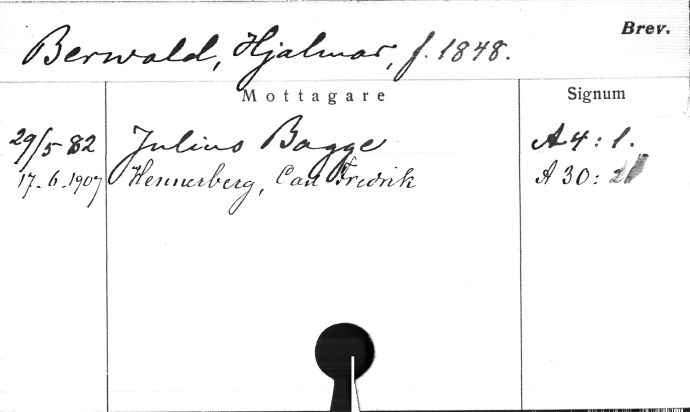 Brev.
Berwald, Hjalmar, f. 1848.
Mottagare Signum
29/5 82 Julius Bagge A 4: 1.
17.6.1907 Hennerberg, Carl Fredrik A 30: